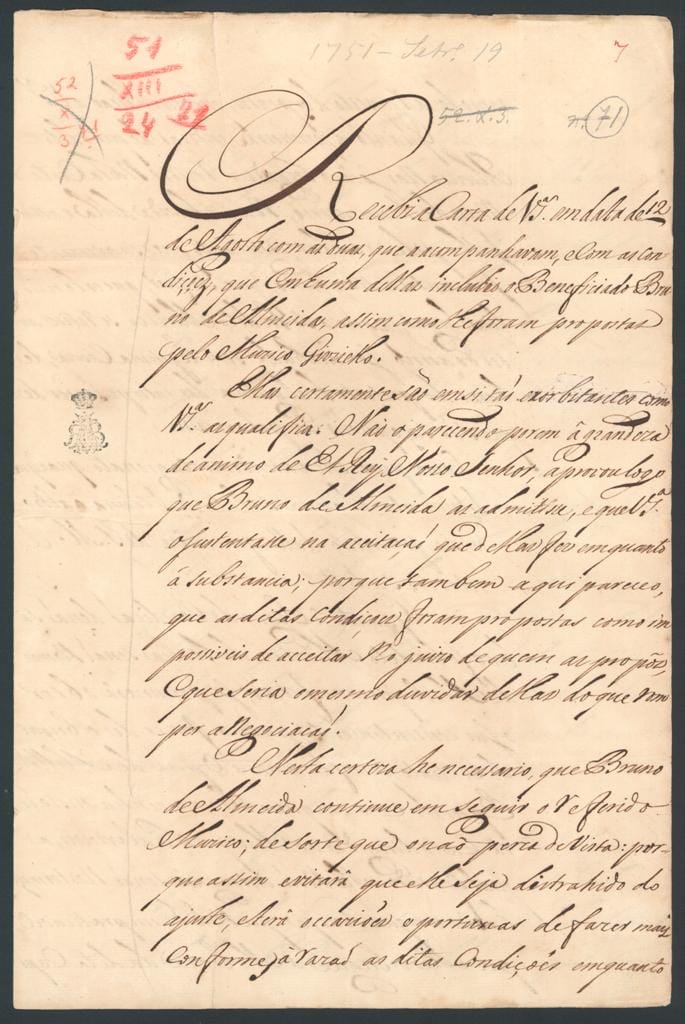 51
XIII
24 21
52
X
3
1751 – Setr.º 19
7
52. X. 3.
n.º 71
Recebi a Carta de V.S.ª em data de 12
de Agosto com as duas, que a acompanhavam, e com as con-
dições, que em huma dellas incluhio o Beneficiado Bru-
no de Almeida, assim como lhe foram propostas
pelo Muzico Gizziello.
Ellas certamente são em si tão exorbitantes como
V.S.ª as qualifica: Não o parecendo porem á grandeza
de animo de El Rey Nosso Senhor, aprovou logo
que Bruno de Almeida as admitisse, e que V.S.ª
o sustentasse na aceitação que dellas fez emquanto
á substancia; porque tambem aqui pareceo,
que as ditas Condiçoes foram propostas como im-
possiveis de acceitar no juizo de quem as propôz,
e que seria o mesmo duvidar dellas do que rom-
per a Negociação.
Nesta certeza he necessario, que Bruno
de Almeida continue em seguir o referido
Muzico; de sorte que o não perca de Vista: por-
que assim evitará que lhe seja distrahido do
ajuste, e terá occazioes oportunas de fazer mais
conformes á razão as ditas Condições emquanto